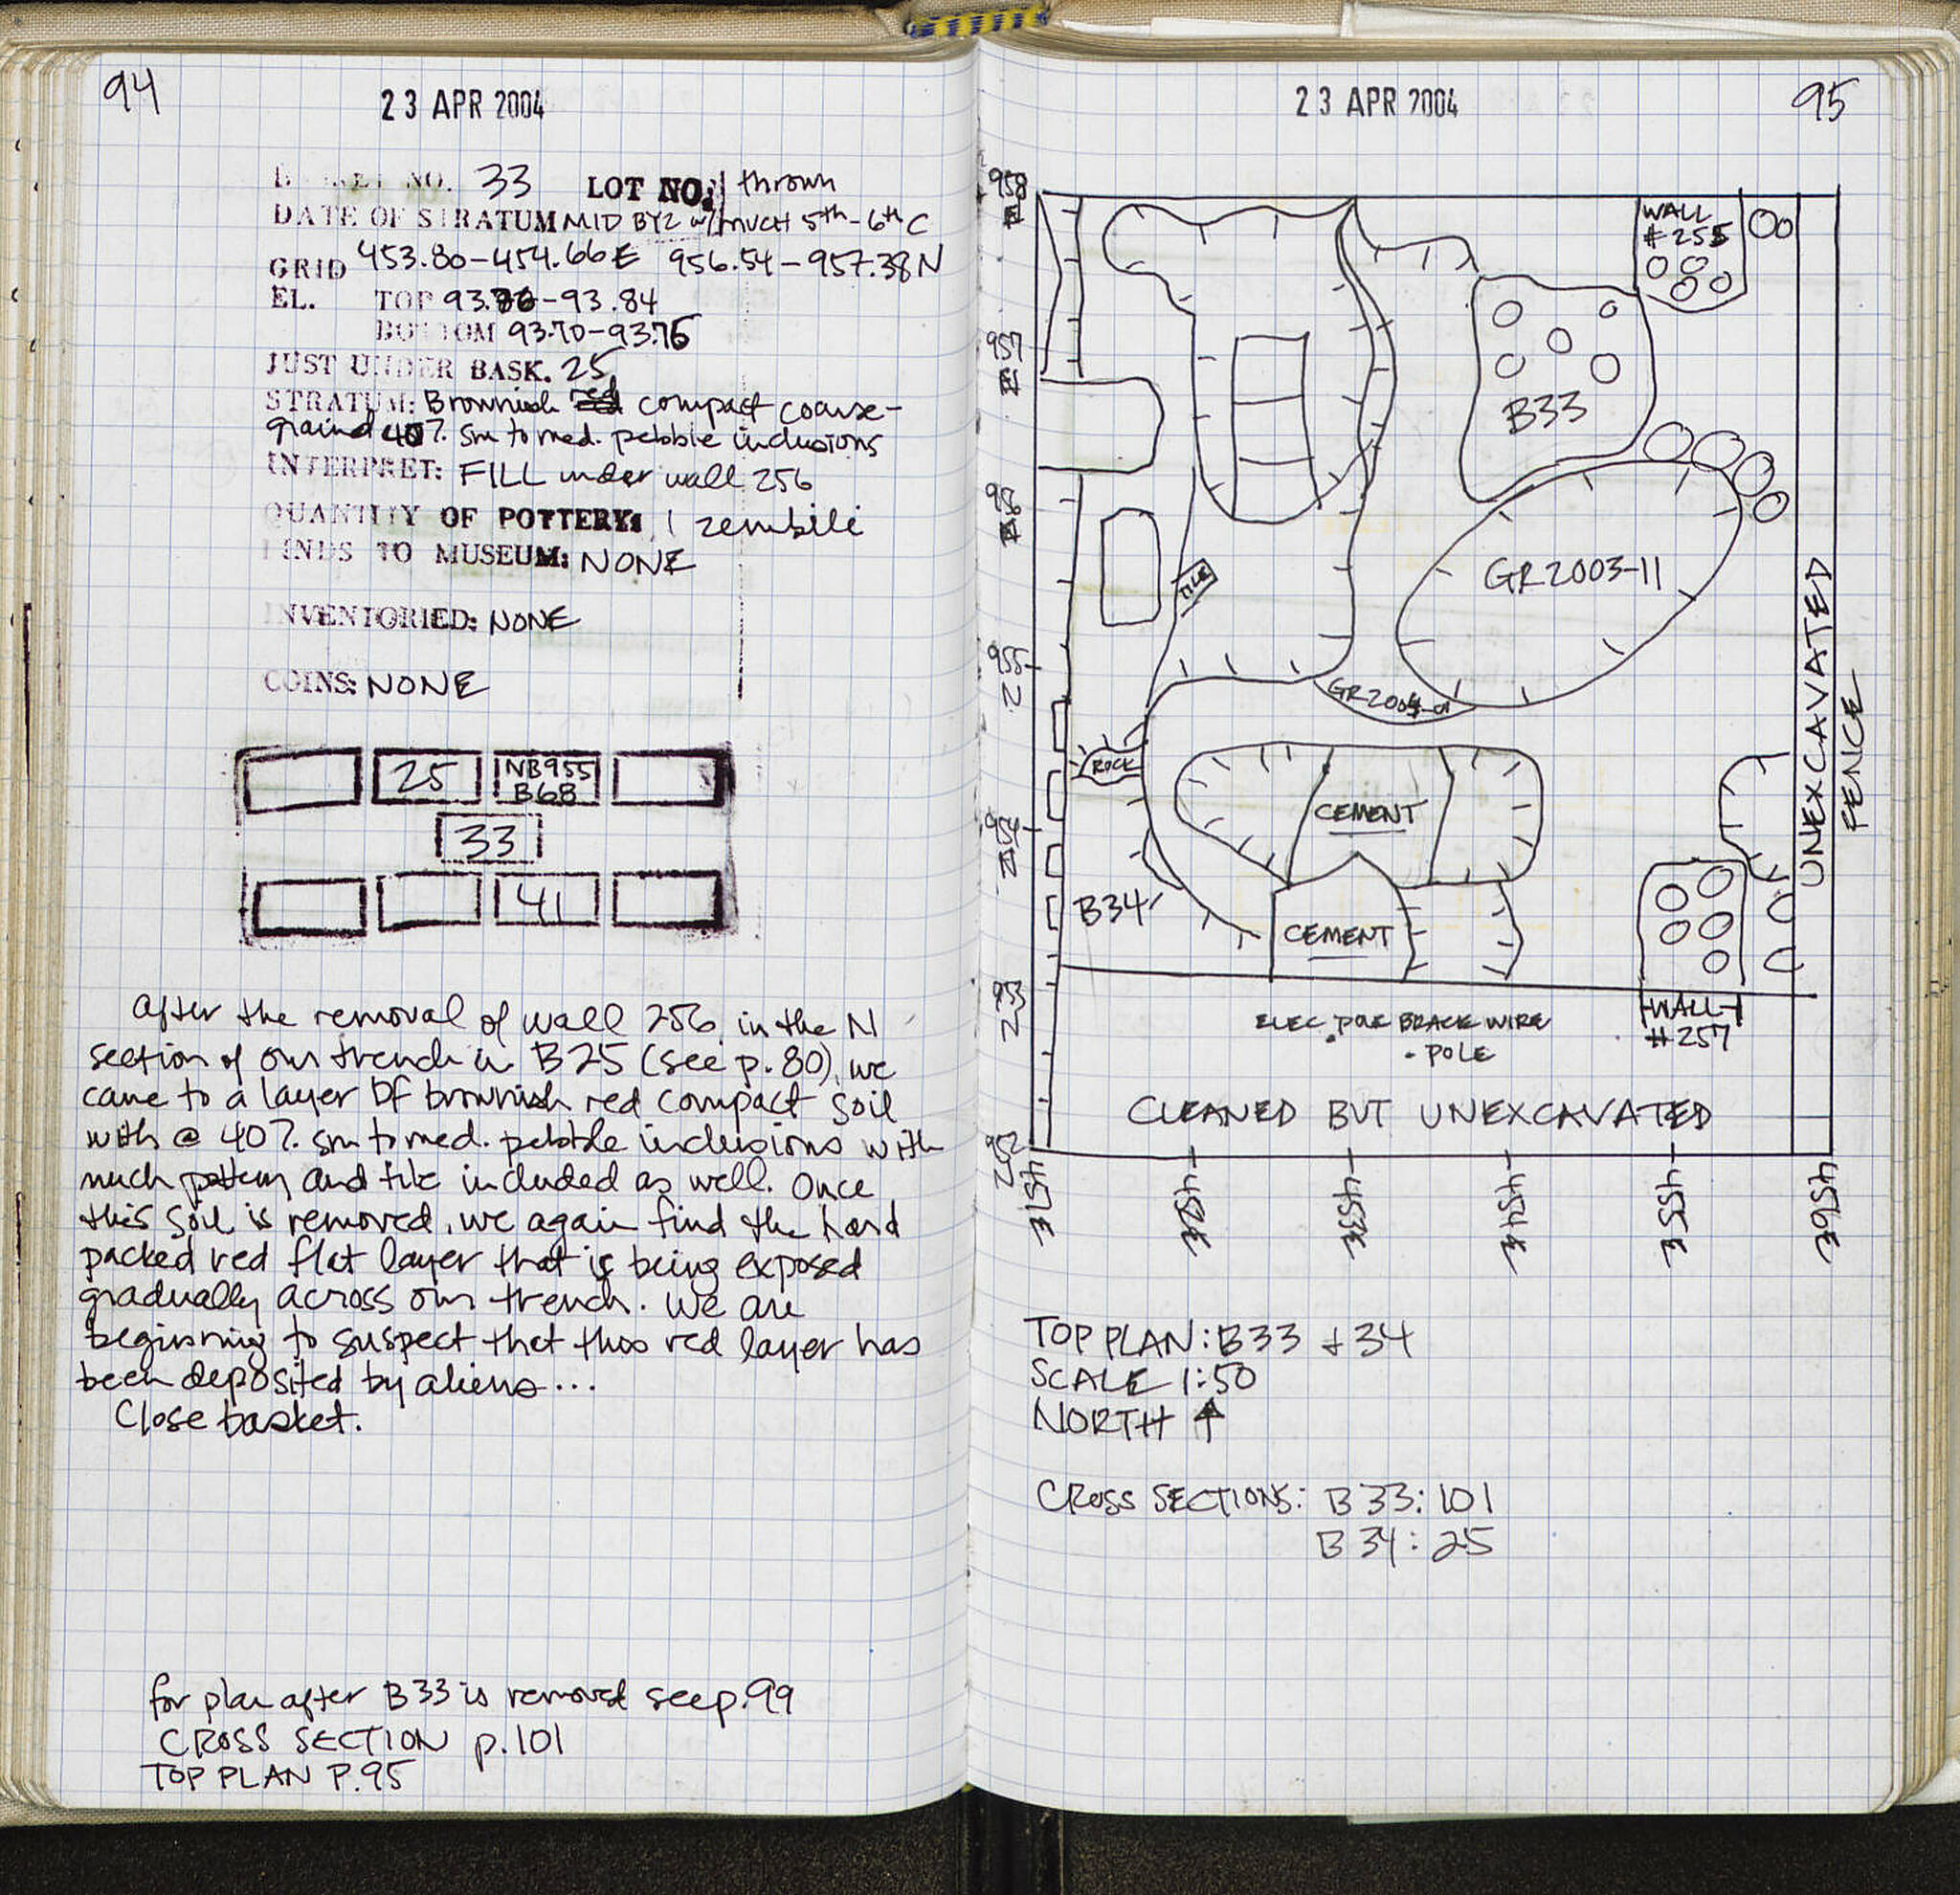 94
23 APR 2004
BASKET NO. 33 LOT NO. thrown
DATE OF STRATUM MID BYZ w/ MUCH 5th-6th C
GRID 453.80-454.66E 956.54-957.38N
EL. TOP 93.76-93.84
BOTTOM 93.70-93.75
JUST UNDER BASK. 25
STRATUM: Brownish red compact coarse-
grained 40% sm to med. pebble inclusions
INTERPRET: FILL under wall 256
QUANTITY OF POTTERY: 1 zembili
FINDS TO MUSEUM: NONE
INVENTORIED: NONE
COINS: NONE
25 NB955
B68
33
41
After the removal of wall 256 in the N
section of our trench in B25 (see p. 80), we
came to a layer of brownish red compact soil
with @ 40% sm to med. pebble inclusions with
much pottery and tile included as well. Once
this soil is removed, we again find the hard
packed red flat layer that is being exposed
gradually across our trench. We are
beginning to suspect that this red layer has
been deposited by aliens...
Close basket.
for plan after B33 is removed see p.99
CROSS SECTION p.101
TOP PLAN P.95
23 APR 2004
95
958
957
956
955
N
954
953
N
952
N
WALL
#255
B33
GR2003-11
TILE
GR2004-01
ROCK
CEMENT
CEMENT
B34
UNEXCAVATED
FENCE
WALL
#257
ELEC POLE BRACK WIRE
POLE
CLEANED BUT UNEXCAVATED
451E
452E
453E
454E
455E
456E
TOP PLAN: B33 + 34
SCALE 1:50
NORTH ↑
CROSS SECTIONS: B33: 101
B34: 25